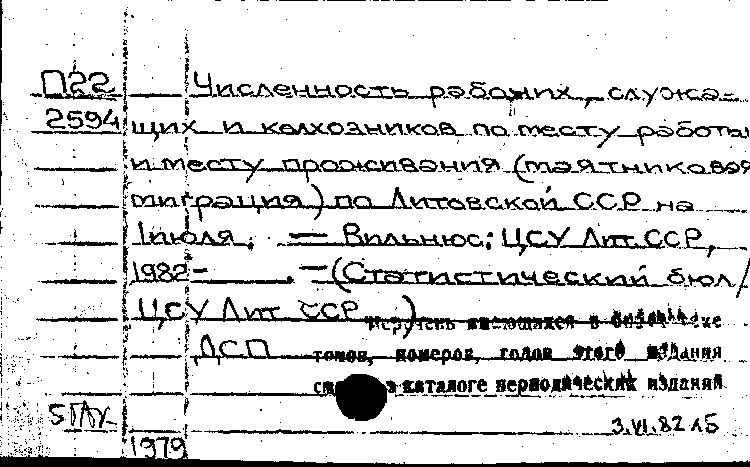 П22 Численность рабочих, служа-
2594 щих и колхозников по месту работы
и месту проживания (маятниковая
миграция) по Литовской ССР на
1 июля. — Вильнюс; ЦСУ Лит.ССР,
1982- . — (Статистический бюл/
ЦСУ Лит ССР )
Перечень имеющихся в библиотеке
ДСП томов, номеров, годов этого издания
см. в каталоге периодических изданий
3.VI.82 лБ
1979